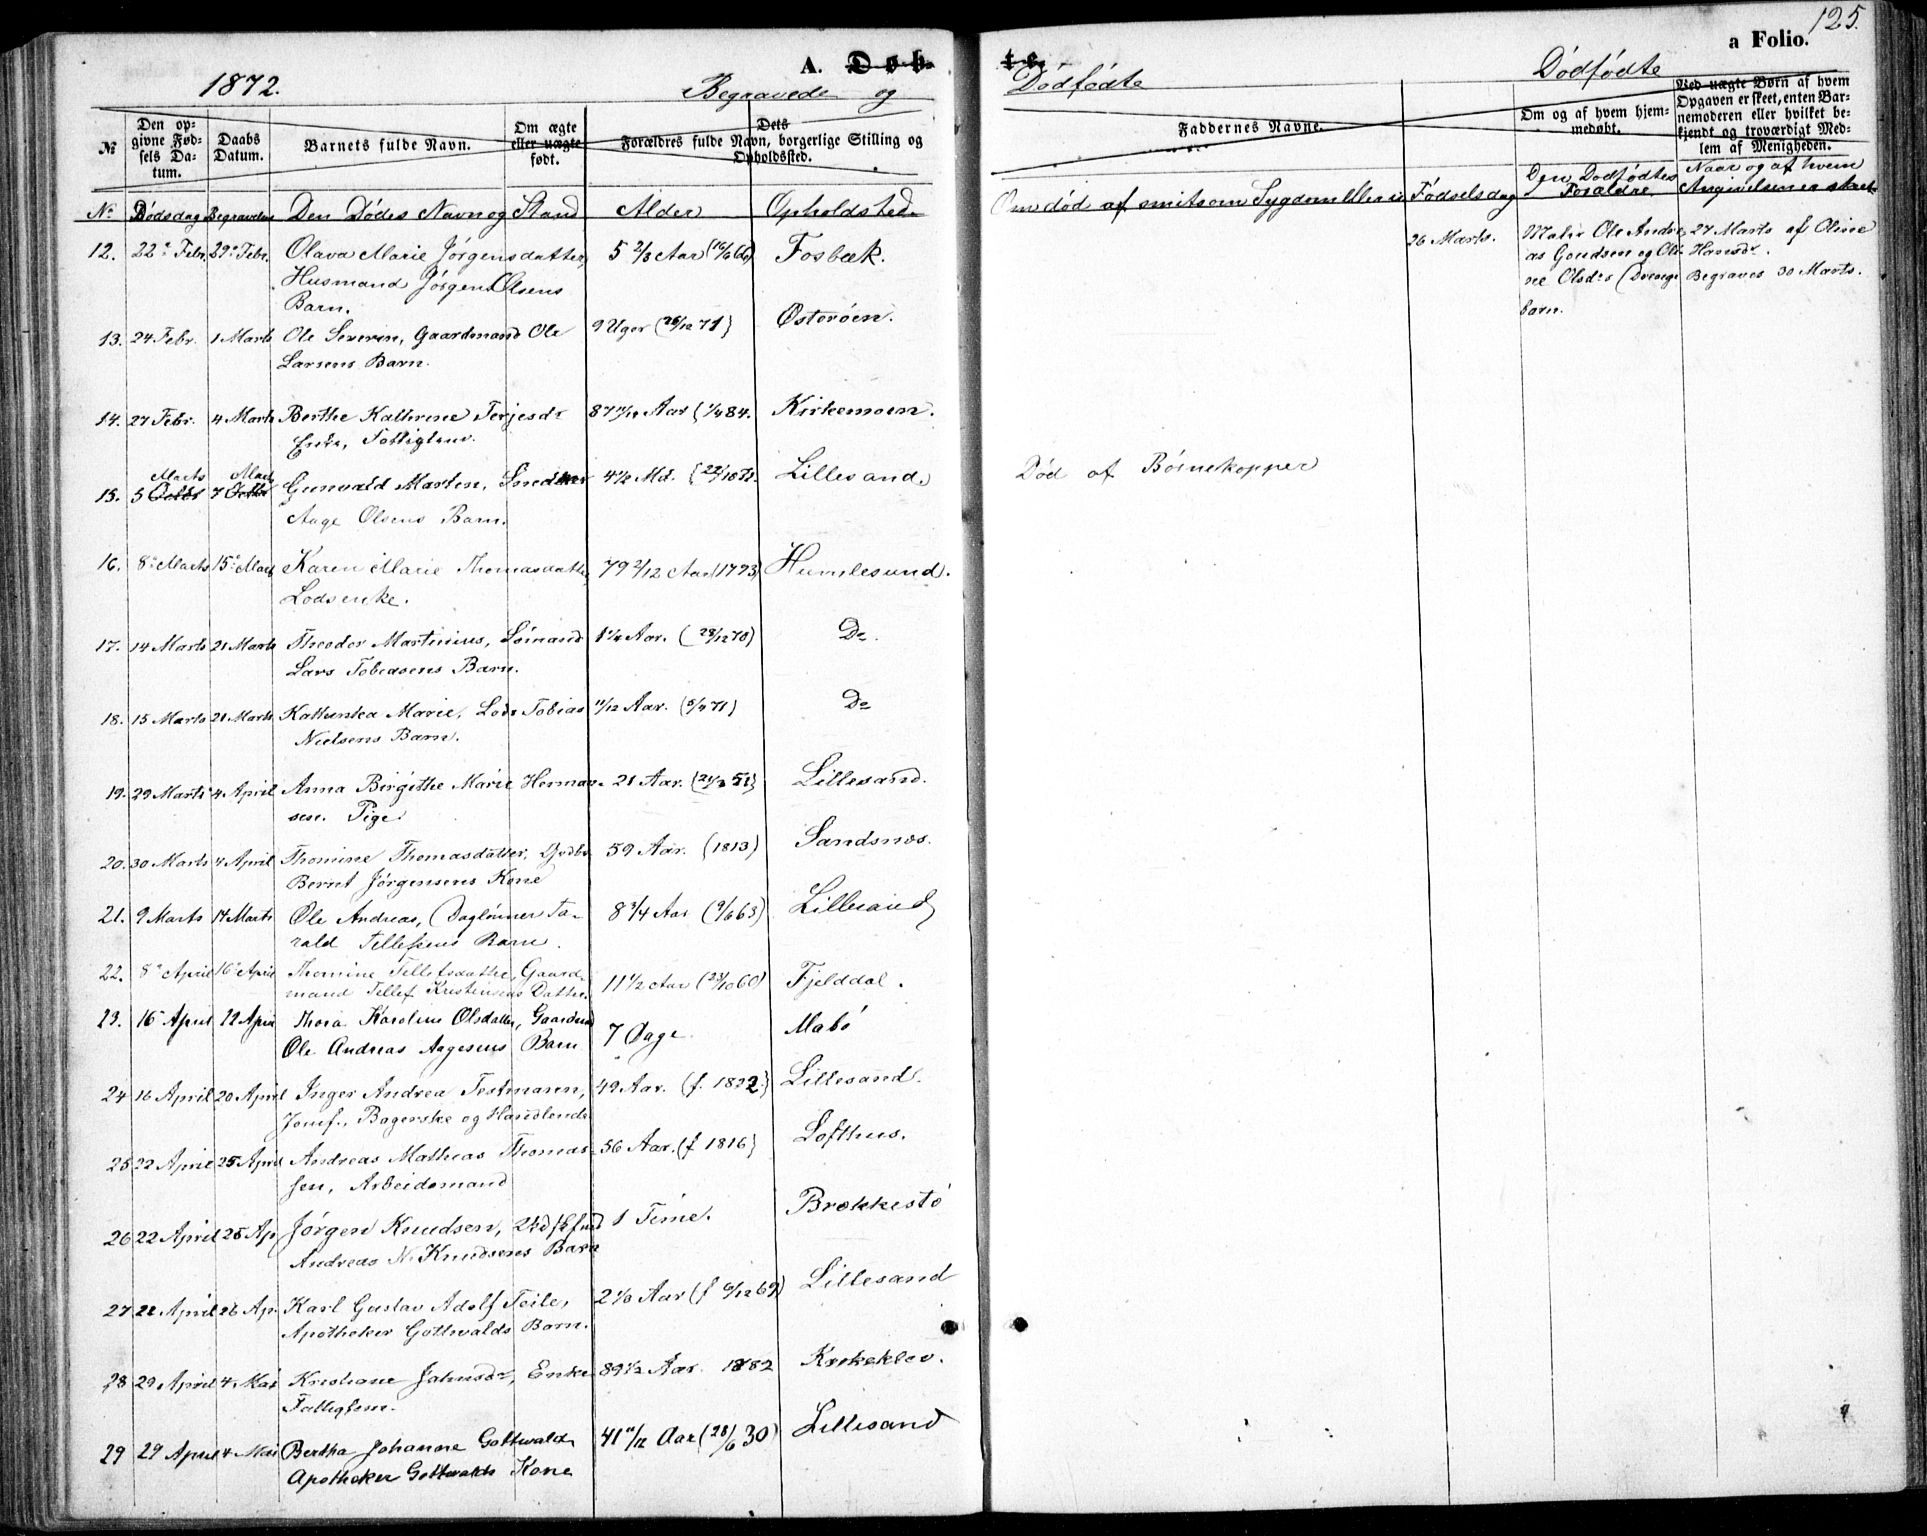 125.
A. Døbte
a Folio.
1872.
Begravede og Dödfödte
Dödfödte
№
Den opgivne Fødsels Datum.
Daabs Datum.
Barnets fulde Navn.
Om ægte eller uægte født.
Dets Forældres fulde Navn, borgerlige Stilling og Opholdssted.
Faddernes Navne.
Om og af hvem hjemmedøbt.
Ved uægte Børn af hvem Opgaven er skeet, enten Barnemoderen eller hvilket bekjendt og troværdigt Medlem af Menigheden.
No Dödsdag Begravelses Den Dödes Navn og Stand Alder Opholdsted.
Om död af smitsom Sygdom Födselsdag Den Dödfödtes Forældre Naar og af hvem Angivelsen er skeet
12. 22 Febr. 29 Febr. Olava Marie Jörgensdatter, 5 2/3 Aar (16/6 66) Fosbæk.
Husmand Jörgen Olsens
Barn.
26 Marts. Matr. Ole Andre- 27 Marts af Oline
as Gundsen og Oli- Hansdr.
ne Olsdr (Drenge Begraves 30 Marts.
barn.
13. 24 Febr. 1 Marts Ole Severin, Gaardmand Ole 9 Uger (26/12 71) Österöen.
Larsens Barn.
14. 27 Febr. 4 Marts Berthe Kathrine Terjesdr 87 11/12 Aar (1/4 84. Kirkemoen.
Enke, Fattiglem.
15. 5 Marts 7 Marts Gunvald Marten, Snedker 4 1/2 Md. (22/10 71. Lillesand.
Aage Olsens Barn.
Död af Börnekopper
16. 8 Marts 15 Marts Karen Marie Thomasdatter, 79 2/12 Aar (1793) Humlesund.
Lodsenke.
17. 14 Marts 21 Marts Theodor Martinius, Sömand 1 1/4 Aar. (28/12 70) Do.
Lars Tobiasens Barn.
18. 15 Marts 21 Marts Kathinka Marie, Lods Tobias 11/12 Aar. (5/4 71) Do
Nielsens Barn.
19. 29 Marts 4 April Anna Birgithe Marie Herman- 21 Aar. (21/3 51) Lillesand.
sen. Pige.
20. 30 Marts 4 April Thomine Thomasdatter, 59 Aar. (1813) Sandsnes.
Bernt Jörgensens Kone
21. 9 Marts 14 Marts Ole Andreas, Daglönner Ta- 8 3/4 Aar (9/6 63) Lillesand
rald Tellefsens Barn.
22. 8 April 16 April Thomine Tellefsdatter, Gaard- 11 1/2 Aar (23/10 60) Fjelddal.
mand Tellef Kristensens Datter.
23. 16 April 22 April Thora Karoline Olsdatter, Gaardmd 7 Dage Mabö
Ole Andreas Aagesens Barn
24 16 April 20 April Inger Andrea Testmann, 49 Aar. (f. 1822) Lillesand.
Jomf., Bagerske og Handlende
25 22 April 25 April Andreas Mathias Thomas- 56 Aar. (f 1816) Lofthus.
sen, Arbeidsmand
26 22 April 25 Ap. Jörgen Knudsen, 1 Time. Brækkestö
Andreas N. Knudsens Barn
27 22 April 26 Ap. Karl Gustav Adolf Feile, 2 1/6 Aar (f 6/12 69) Lillesand
Apotheker Gottwalds Barn.
28 29 April 4 Mai Kristiane Jahnsdr, Enke 89 1/2 Aar. 1882 Krekeklev.
Fattiglem.
29 29 April 4 Mai Bertha Johanne Gottwald, 41 11/12 Aar (28/6 30) Lillesand
Apotheker Gottwalds Kone